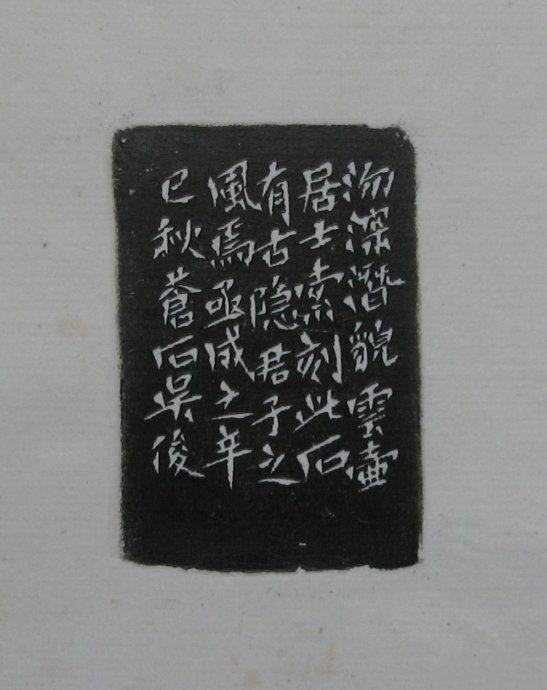 沕深潛貌雲壷
居士索刻此石
有古隐君子之
風焉亟成之辛
巳秋蒼石吴俊